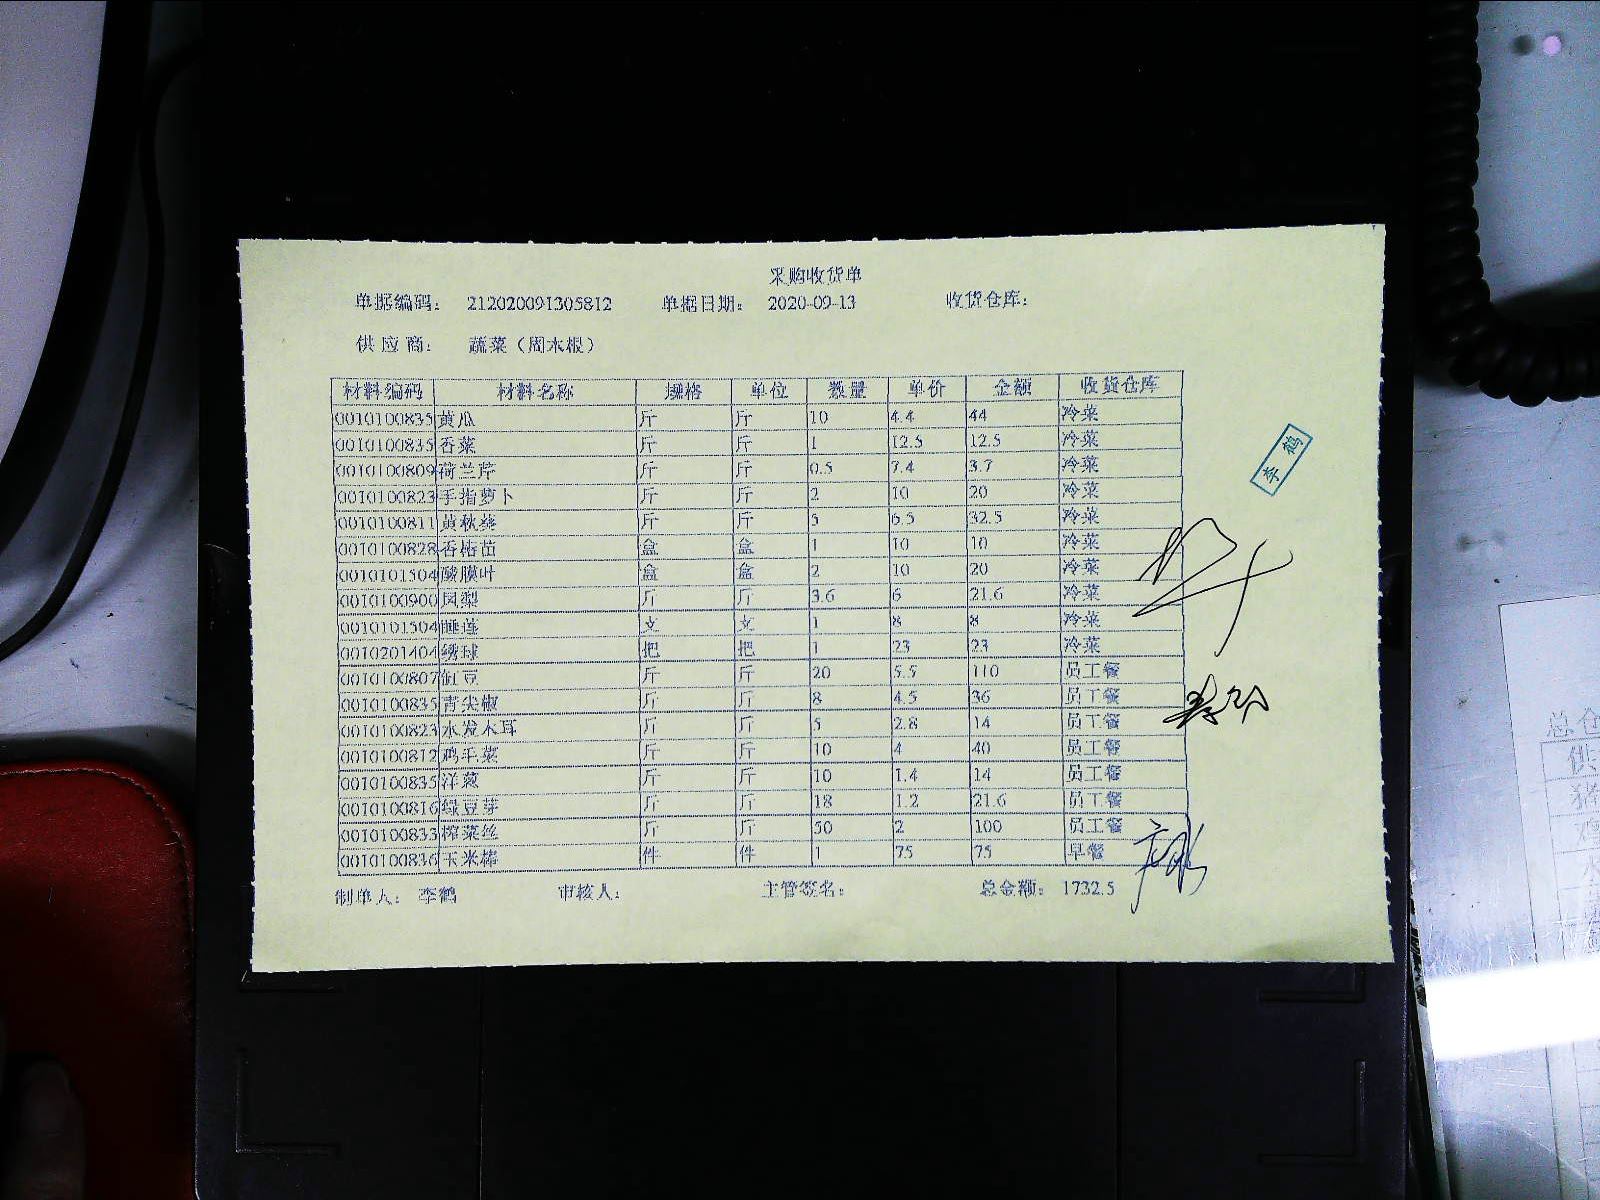 采购收货单
单据编码： 212020091305812 单据日期： 2020-09-13 收货仓库：
供应商： 蔬菜（周木根）
材料编码 材料名称 规格 单位 数量 单价 金额 收货仓库
0010100835 黄瓜 斤 斤 10 4.4 44 冷菜
0010100835 香菜 斤 斤 1 12.5 12.5 冷菜
0010100809 荷兰芹 斤 斤 0.5 7.4 3.7 冷菜
0010100823 手指萝卜 斤 斤 2 10 20 冷菜
0010100811 黄秋葵 斤 斤 5 6.5 32.5 冷菜
0010100828 香椿苗 盒 盒 1 10 10 冷菜
0010101504 酸膜叶 盒 盒 2 10 20 冷菜
0010100900 凤梨 斤 斤 3.6 6 21.6 冷菜
0010101504 睡莲 支 支 1 8 8 冷菜
0010201404 绣球 把 把 1 23 23 冷菜
0010100807 缸豆 斤 斤 20 5.5 110 员工餐
0010100835 青尖椒 斤 斤 8 4.5 36 员工餐
0010100823 水发木耳 斤 斤 5 2.8 14 员工餐
0010100812 鸡毛菜 斤 斤 10 4 40 员工餐
0010100835 洋葱 斤 斤 10 1.4 14 员工餐
0010100816 绿豆芽 斤 斤 18 1.2 21.6 员工餐
0010100833 榨菜丝 斤 斤 50 2 100 员工餐
0010100836 玉米棒 件 件 1 75 75 早餐
制单人： 李鹤 审核人： 主管签名： 总金额： 1732.5
李鹤
总仓
供
猪
鸡